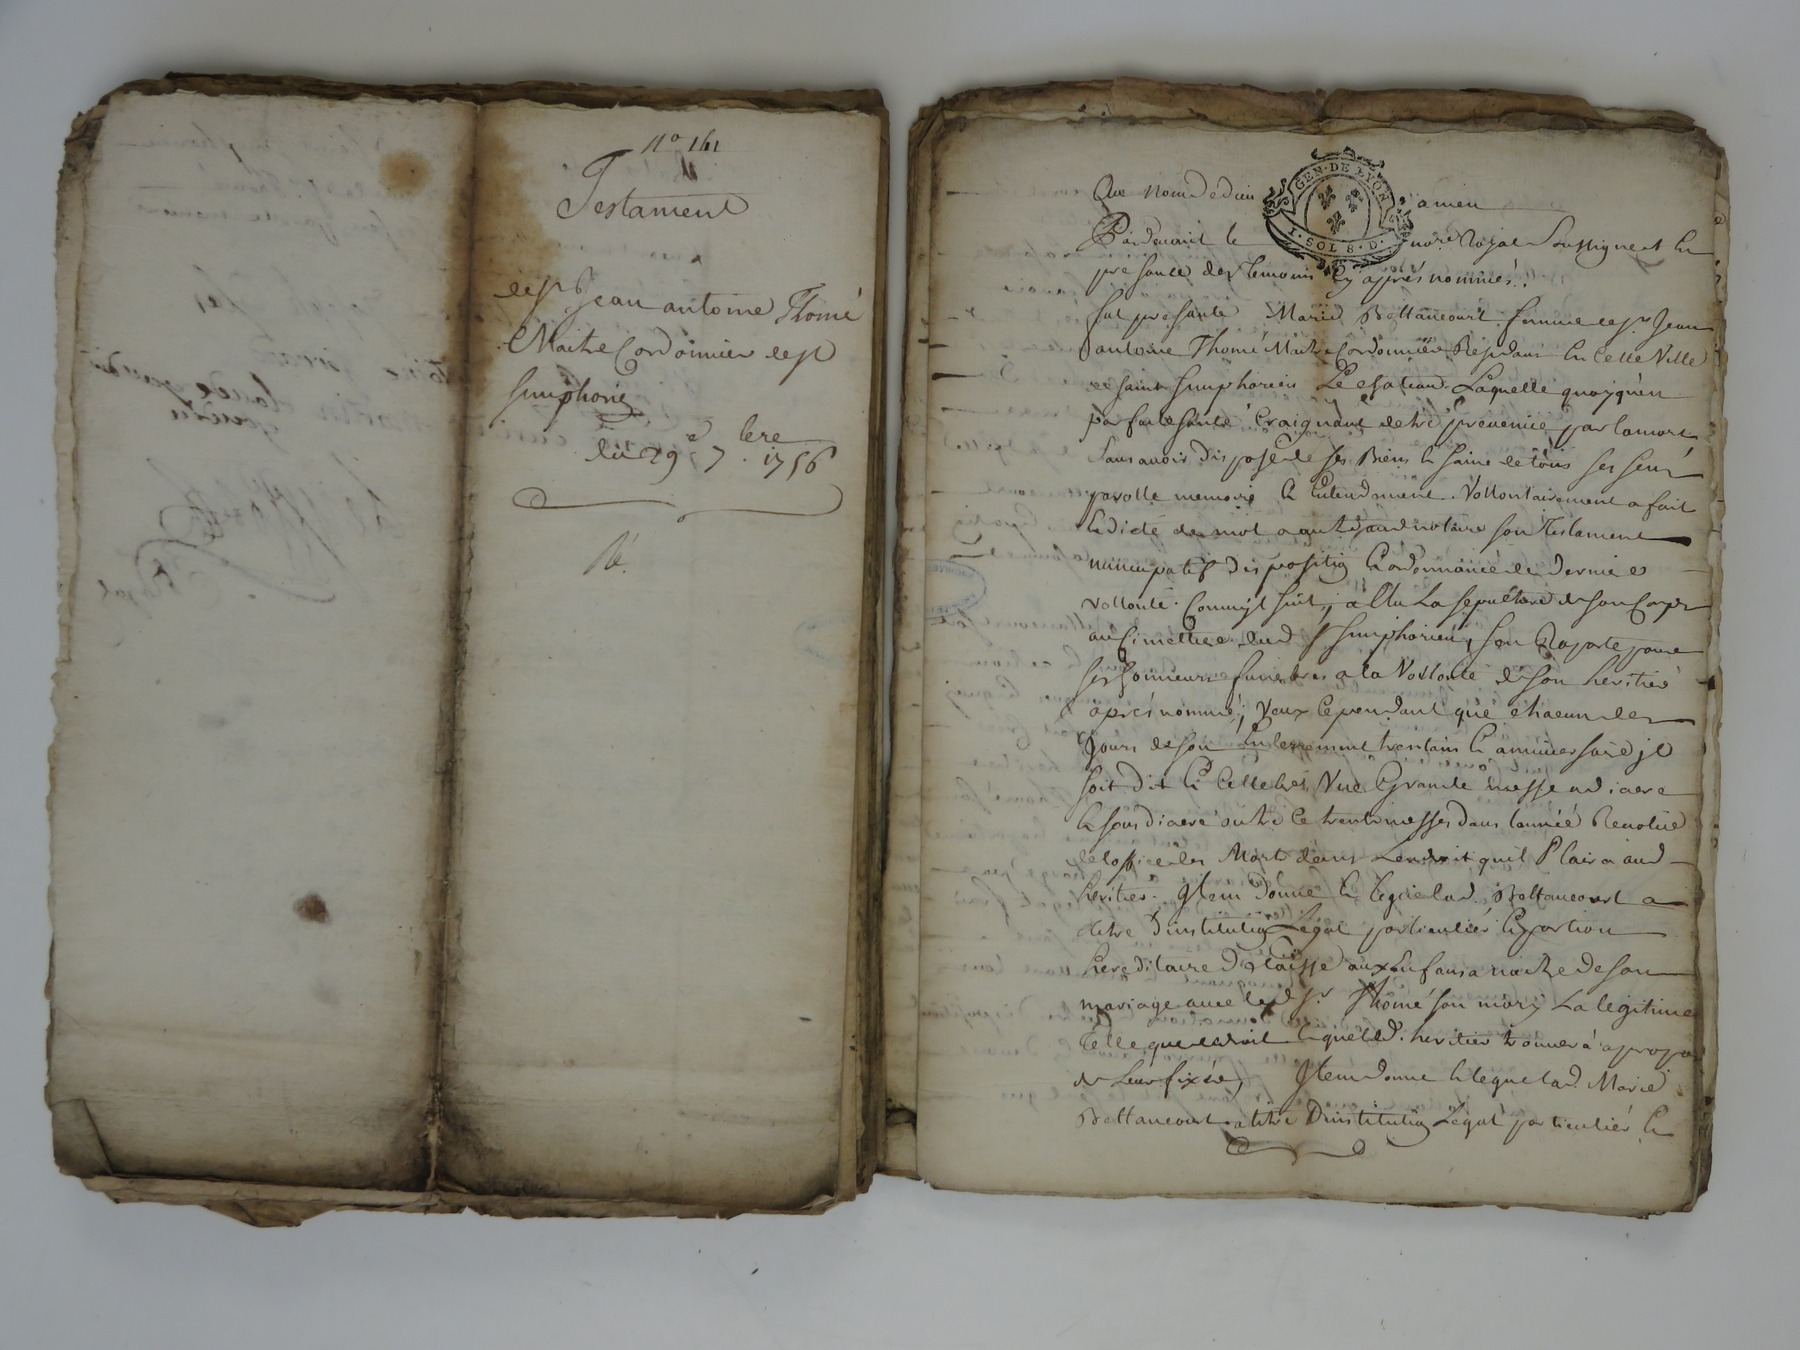 n° 161
Testament
de sr Jean antoine Thomé
Maitre Cordonnier de st
Simphorié
du 29e 7bre 1756
GEN·DE LYON
1·SOL 8·D·
Au nom de dieu amen
Pardevant le nore Royal Soussigné et En
presance des temoins Cy après nommés.
fut presante Marie Bettancourt femme de sr Jean
antoine Thomé Maitre Cordonnier Residant En Cette Ville
de saint Simphorien Le chateau. Laquelle quoyqu'en
parfaite santé Craignant detre prevenüe par la mort
Sans avoir disposé de ses Biens Et saine de tous ses sens
parolle memoire Et Entendement. Vollontairement a fait
Et dicté de mot a aud notaire son Testament
nuncupatif disposition Et ordonnance de derniere
vollonté. Comm'jl suit; a Elu La sepulture de son Corps
au Cimettiere dud St Simphorien, sen Raporte pour
ses honneurs funebres a la Vollonté de son heritier
après nommé; Veux Cependant que chacun des
Jours de son Enterrement trentain Et anniversaire jl
soit dit Et Cellebré Une Grande messe a diacre
Et sous diacre outre Ce trente messes dans l'année Revolüe
de loffice des Morts dans Lendroit quil Plaira aud
heritier. Jtem donne Et legue lad. Bettancourt a
titre d'institution Legat particulier Et portion
hereditaire delaissé aux Enfans a naitre de son
mariage avec led Sr Thomé son mary La legitime
telle que de droit Et que led. heritier trouvera a propos
de Leur fixer, Jtem donne Et legue lad. Marie
Bettancourt a titre D'institution Legat particulier Et